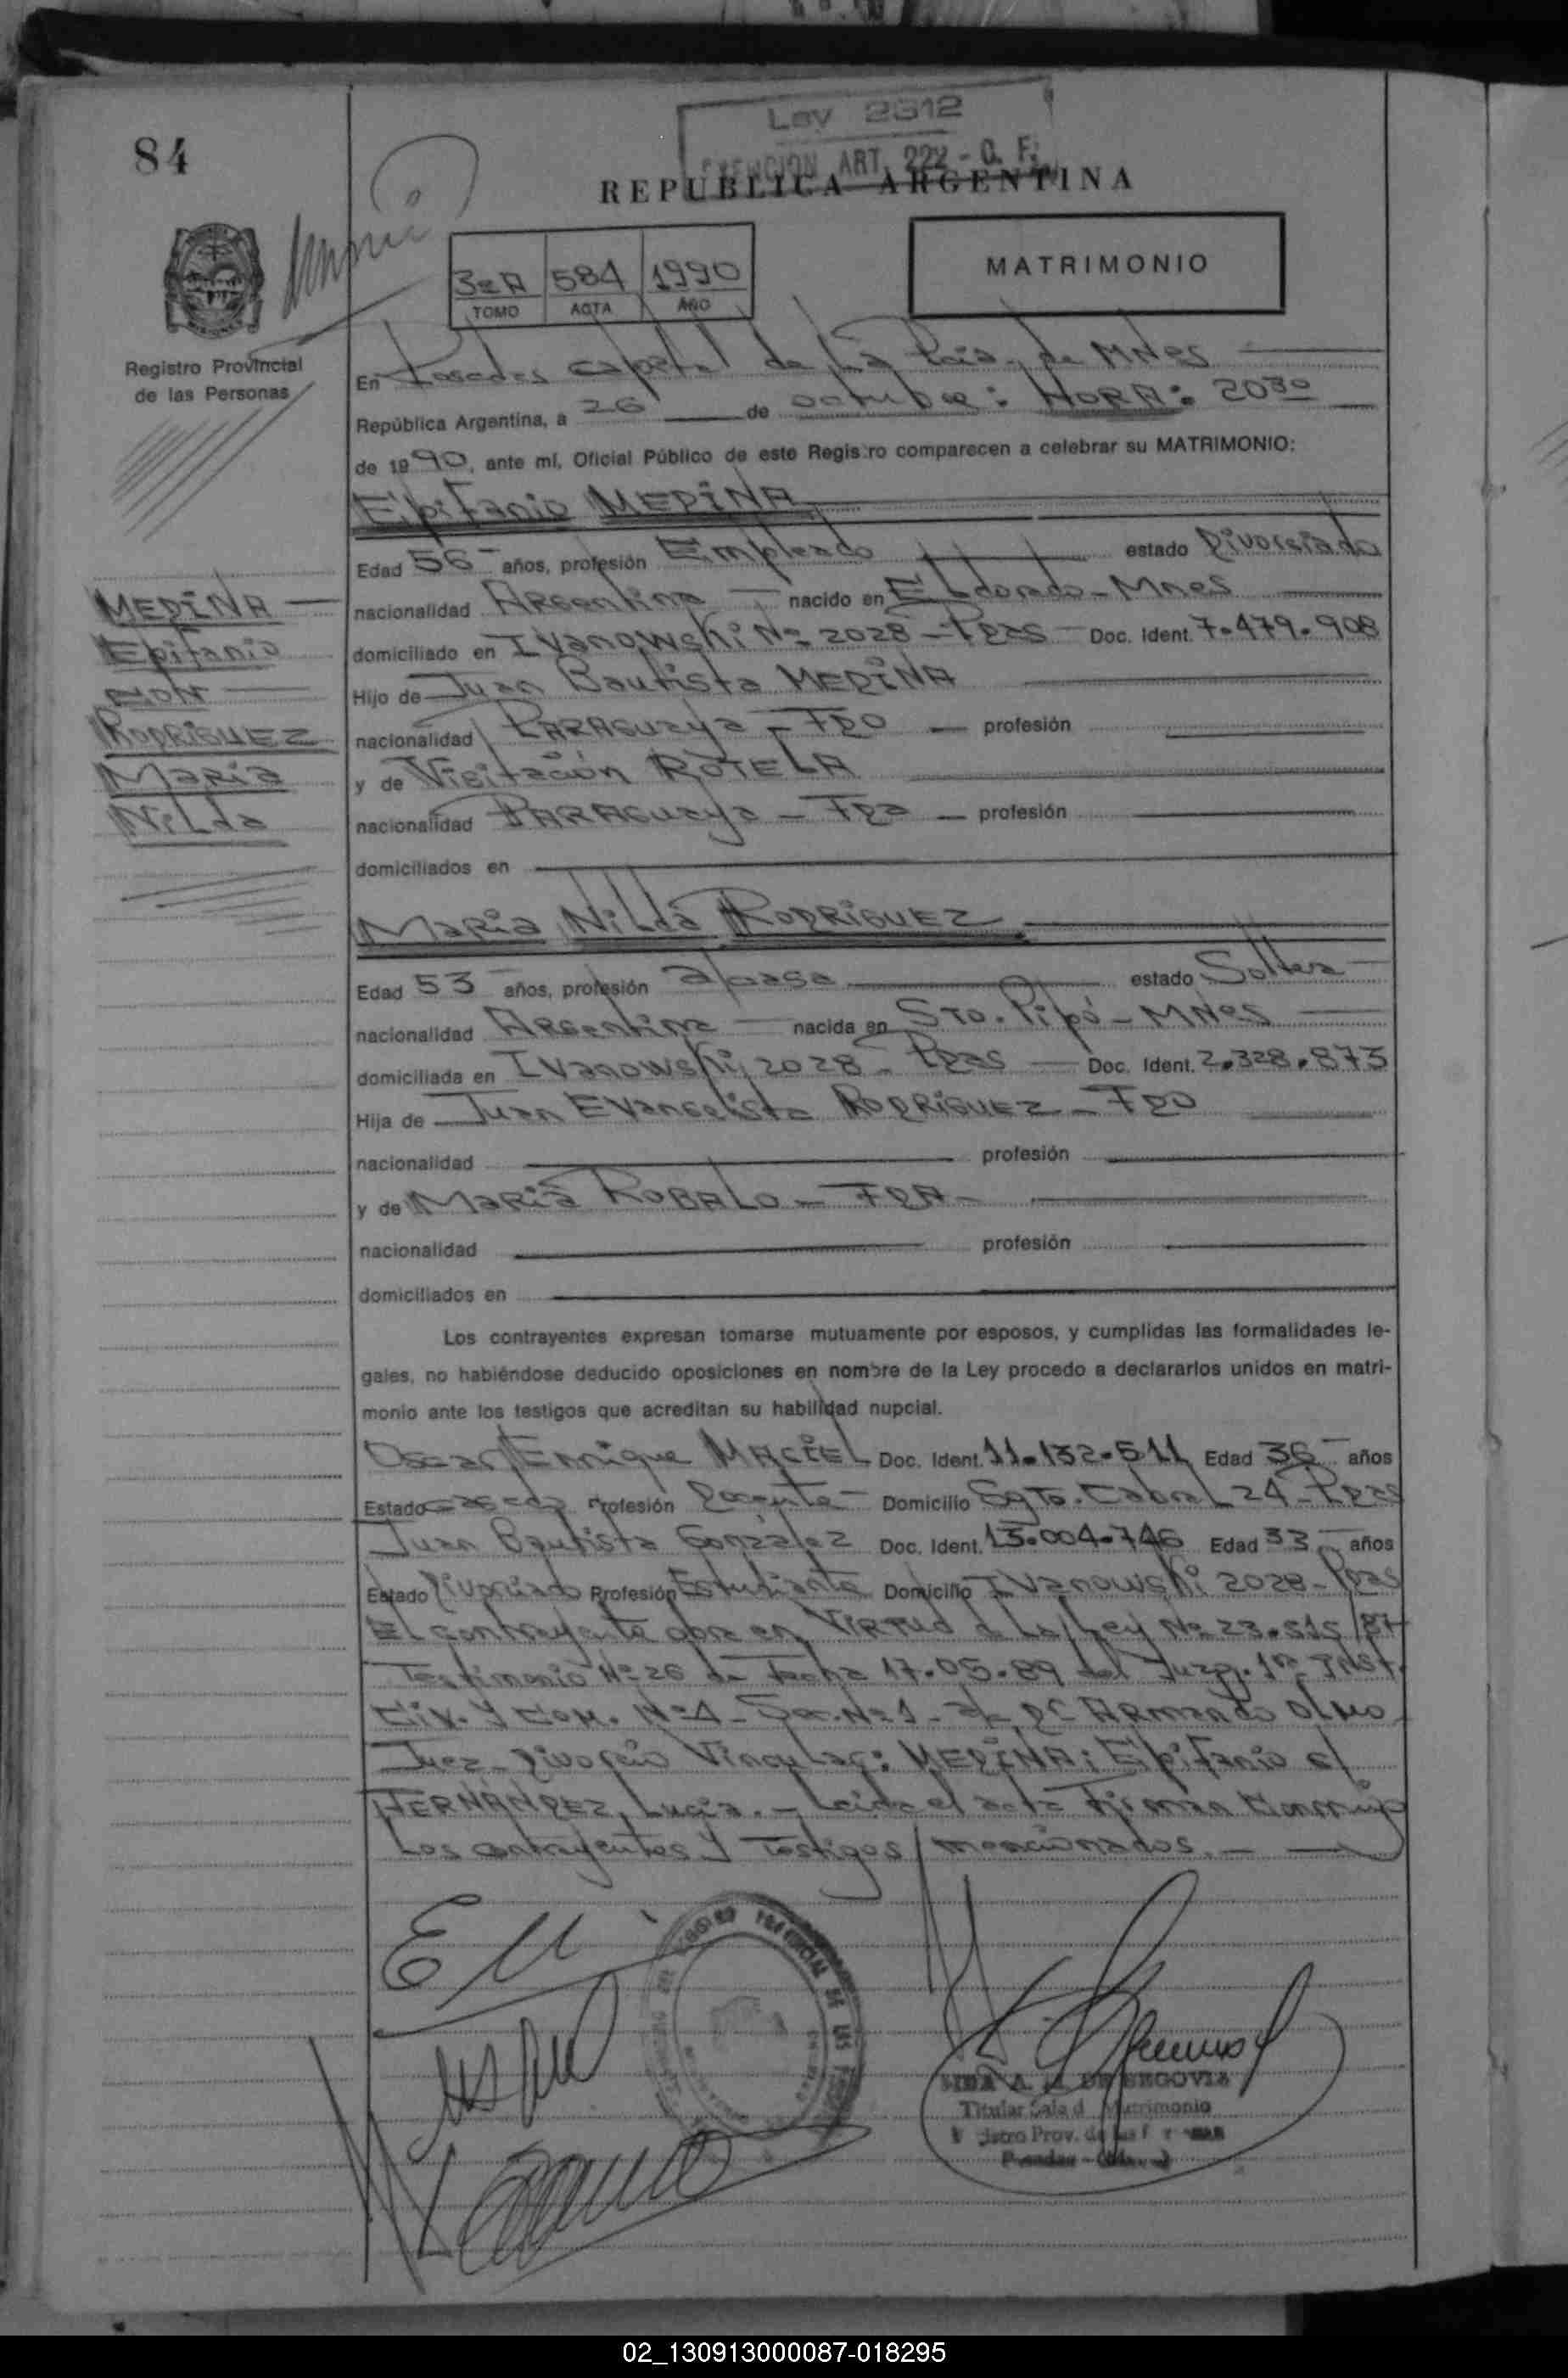 Ley 2312
EXENCION ART. 222 - C. F.
84
REPUBLICA ARGENTINA
3er A 584 1990
TOMO ACTA AÑO
MATRIMONIO
Registro Provincial
de las Personas
En Posadas capital de la Pcia. de MNes
República Argentina, a 26 de octubre: HORA: 20³⁰
de 1990, ante mí, Oficial Público de este Registro comparecen a celebrar su MATRIMONIO:
Epifanio MEDINA
Edad 56 años, profesión Empleado estado Divorciado
nacionalidad Argentina nacido en Eldorado - MNes
domiciliado en IVanowski Nº 2028 - Pdas Doc. Ident. 7.479.908
Hijo de Juan Bautista MEDINA
nacionalidad PARAGuaya - FDO - profesión
y de Visitación ROTELA
nacionalidad PARAGuaya - FDa - profesión
domiciliados en
MEDINA
Epifanio
CON
RODRIGUEZ
Maria
NiLda
Maria Nilda RODRIGUEZ
Edad 53 años, profesión s/casa estado Soltera
nacionalidad Argentina nacida en Sto. Pipó - MNes
domiciliada en IVanowski 2028 - Pdas Doc. Ident. 2.328.873
Hija de Juan EVangelista RODRIGUEZ - FDO
nacionalidad profesión
y de Maria ROBALO - FDA -
nacionalidad profesión
domiciliados en
Los contrayentes expresan tomarse mutuamente por esposos, y cumplidas las formalidades le-
gales, no habiéndose deducido oposiciones en nombre de la Ley procedo a declararlos unidos en matri-
monio ante los testigos que acreditan su habilidad nupcial.
Oscar Enrique MACIEL Doc. Ident. 11.132.511 Edad 36 años
Estado casado Profesión Docente Domicilio Sgto. Cabral 24 - Pdas
Juan Bautista González Doc. Ident. 13.004.746 Edad 33 años
Estado Divorciado Profesión Estudiante Domicilio IVanowski 2028 - Pdas
El contrayente obra en VIRTUD d La Ley Nº 23.515/87
Testimonio Nº 26 de Fecha 17.05.89 del Juzg. 1ra INst.
Civ. y Com. Nº 4 - Sec. Nº 1 - Dr ARmando Olmo
Juez - Divorcio Vincular: MEDINA; Epifanio c/
HERNANDEZ, Lucia. - Leida el acta Firman Conmigo
Los contrayentes y Testigos mencionados. -
DE SEGOVIA
Titular Sala d Matrimonio
Prov. de las
Posadas
02_130913000087-018295